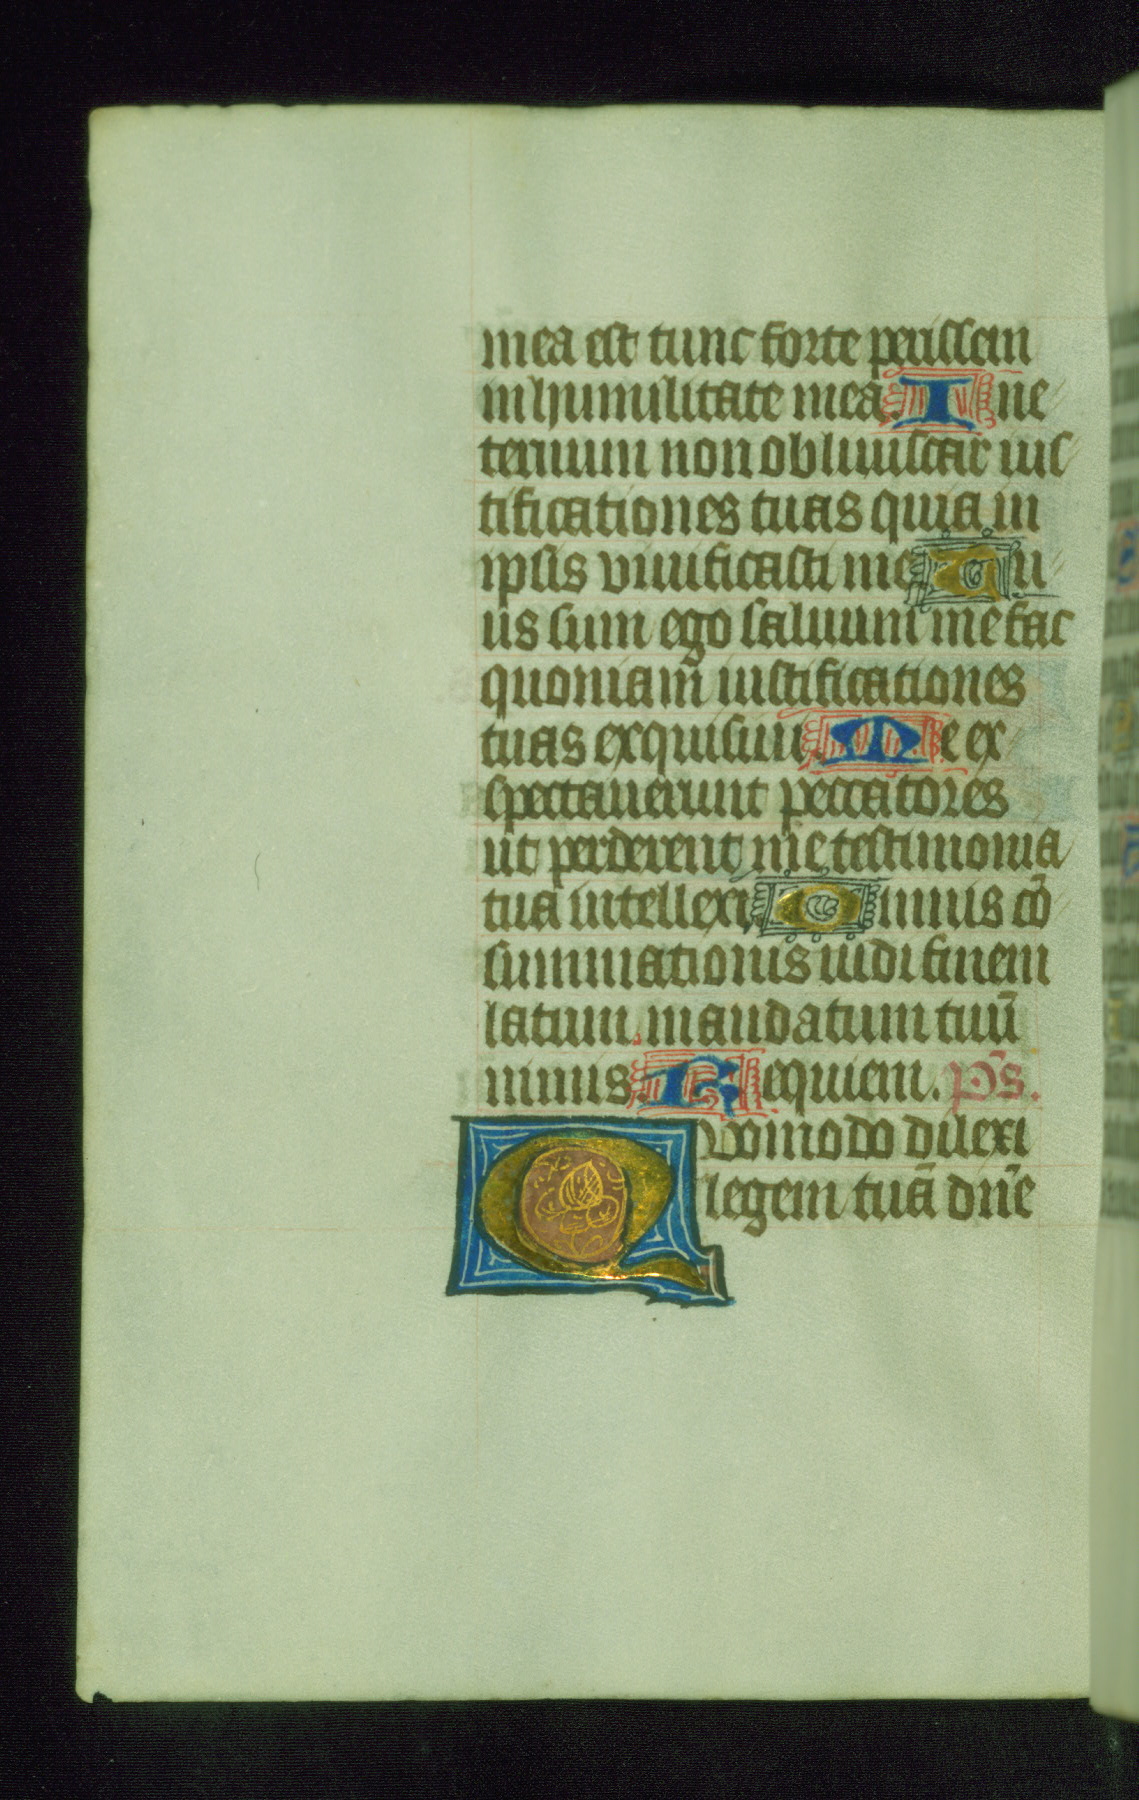 mea est tunc forte perissem
in humilitate mea. In e
ternum non obliuiscar ius
tificationes tuas quia in
ipsis viuificasti me Tu
us sum ego saluum me fac
quoniam iustificationes
tuas exquisiui. Me ex
spectauerunt peccatores
ut perderent me testimonia
tua intellexi Omnis cō
summationis uidi finem
latum mandatum tuū
nimis. Requiem. p̄s.
Quomodo dilexi
legem tuā dn̄e